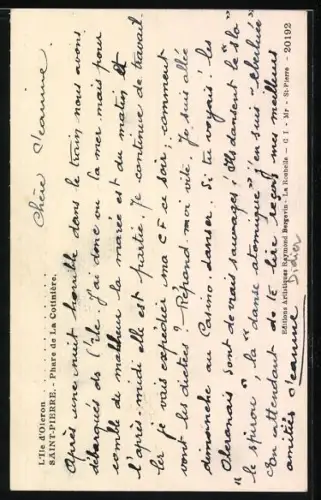 L'Ile d'Oleron
SAINT-PIERRE. - Phare de La Cotinière.
Chère Jeannine.
Après une nuit horrible dans le train nous avons
débarqués ds l'île. J'ai donc vu la mer mais pour
comble de malheur la marée est du matin et
l'après midi elle est partie. Je continue de travail
ler je vais expédier ma C F ce soir; comment
vont les dictées? - Répond moi vite. Je suis allée
dimanche au Casino, danser. Si tu voyais! les
"Oleronais" sont de vrais sauvages; Ils dansent le "slo"
le "spirou", la "danse atomique" j'en suis
En attendant de te lire reçois mes meilleurs
amitiés Jeannine
Didier
Editions Artistiques Raymond Bergevin - La Rochelle - C I - Mr - St-Pierre - 20192